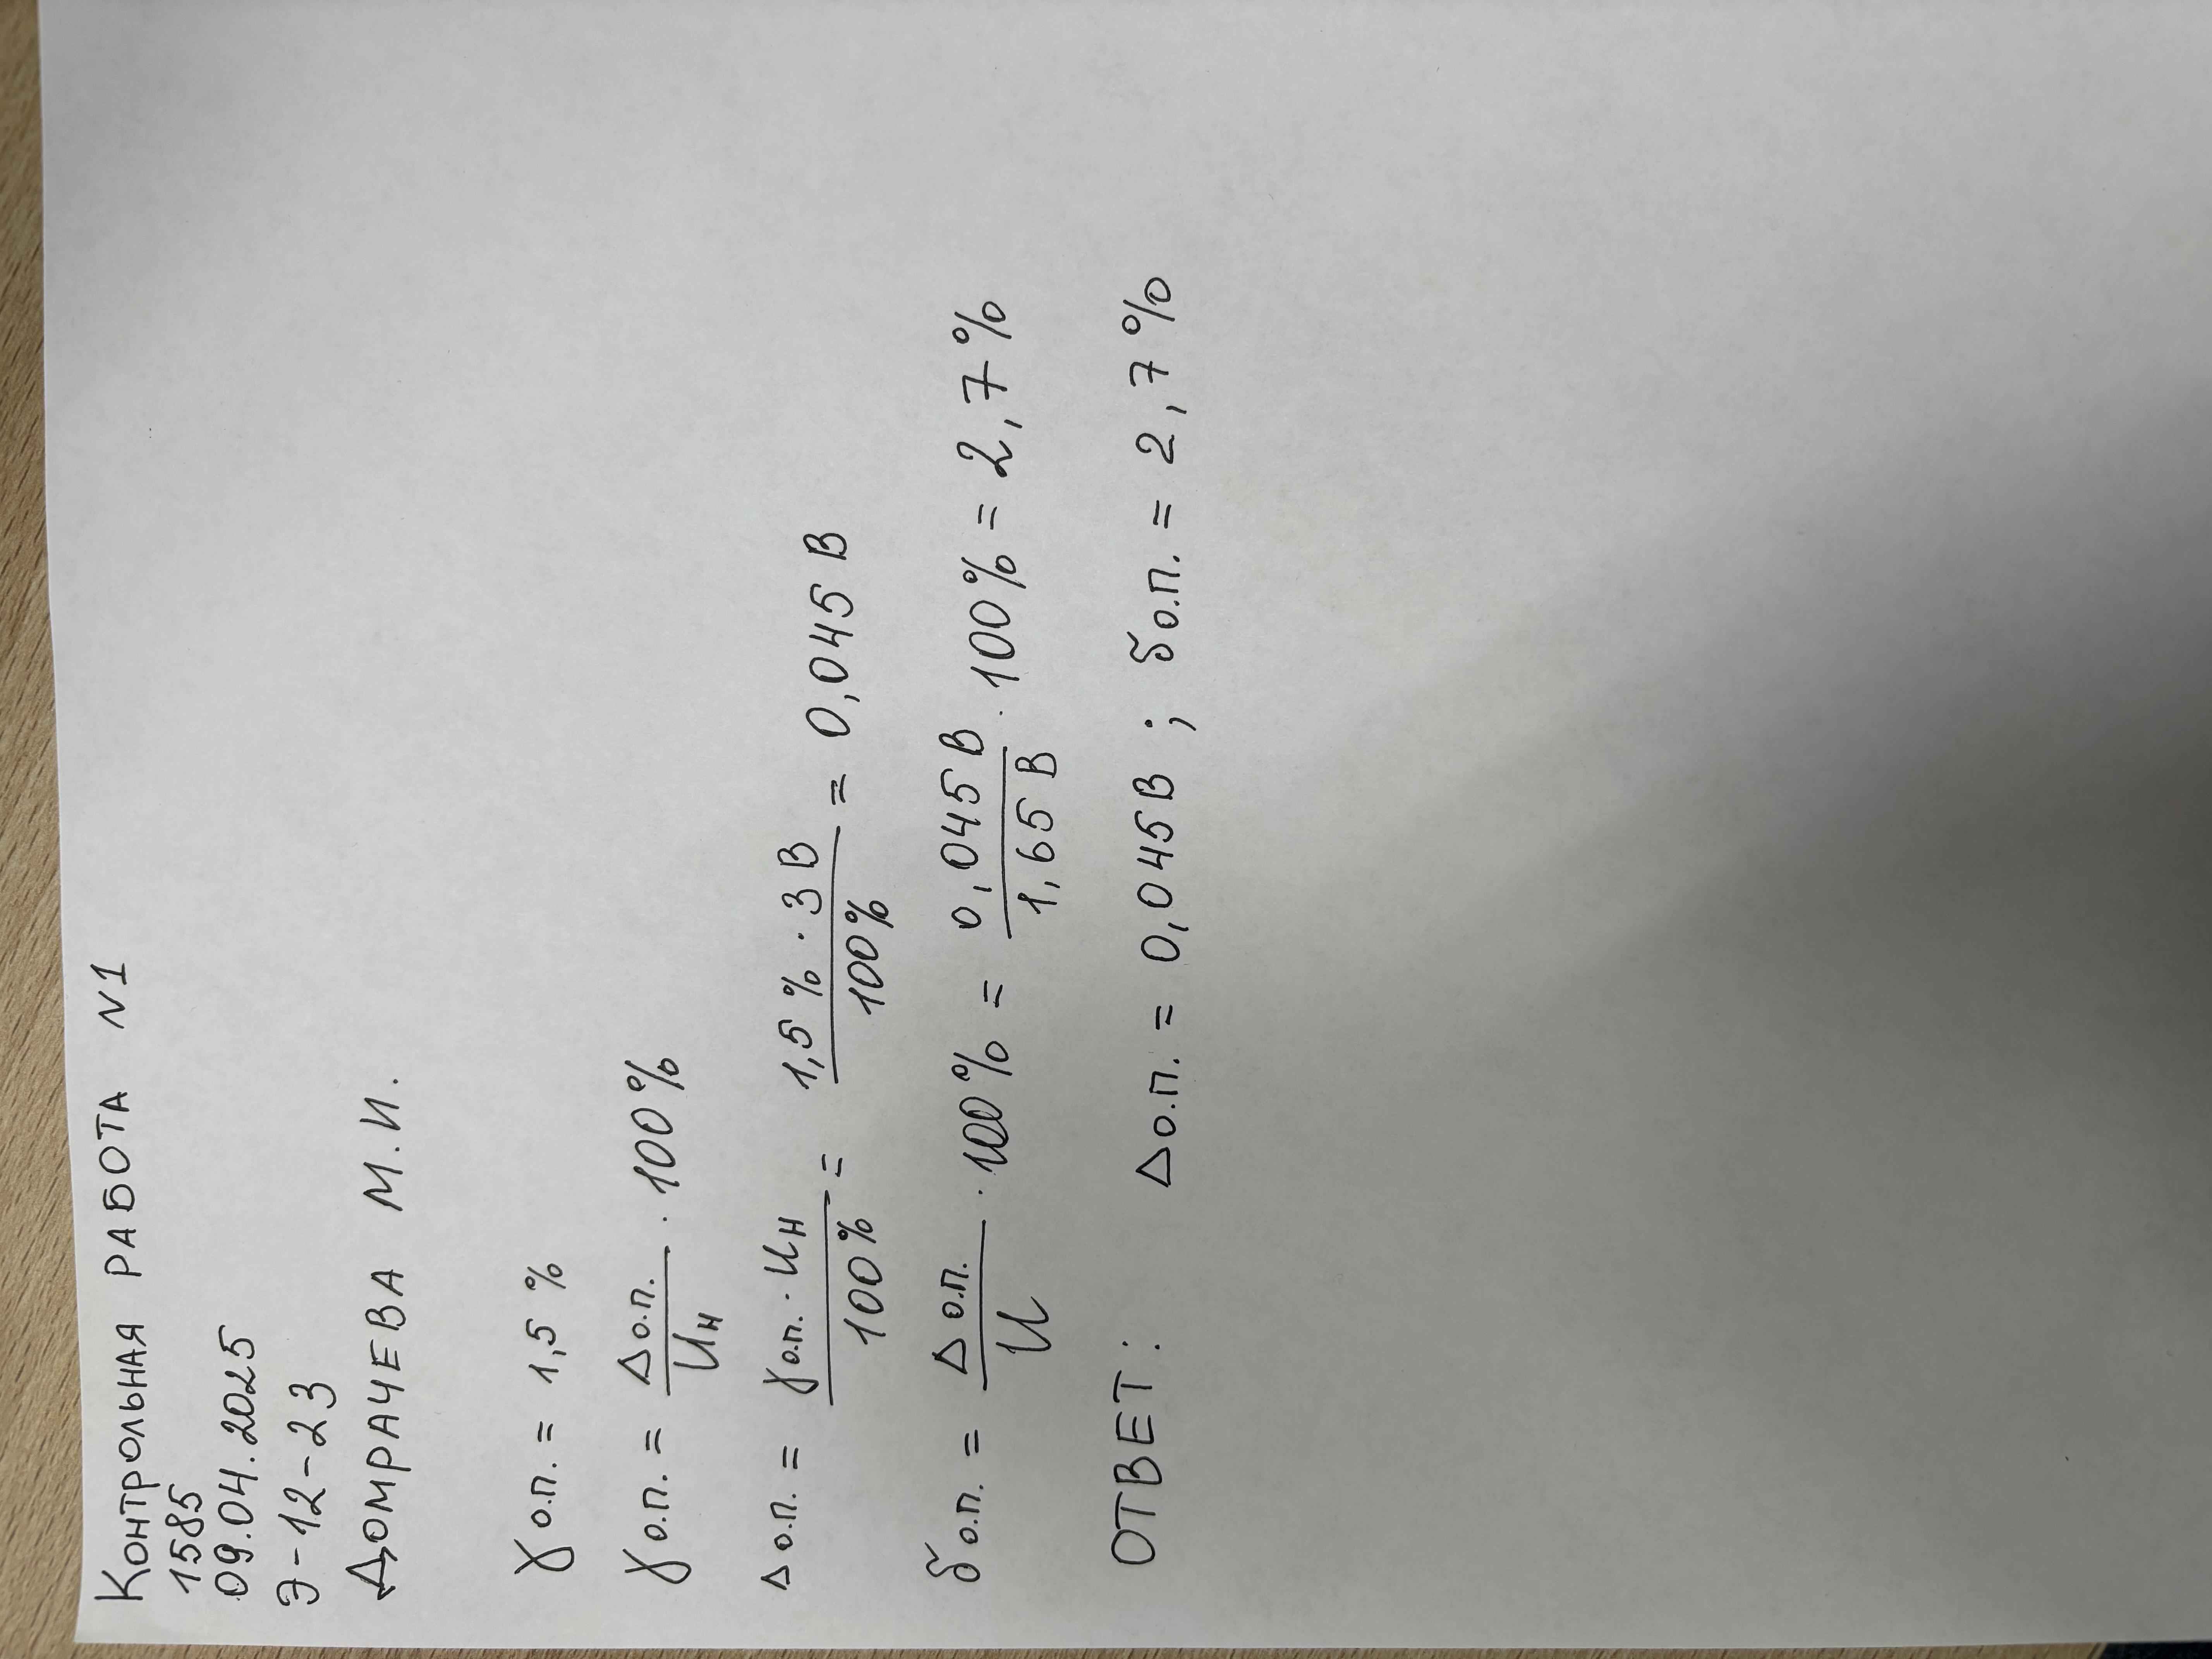 Контрольная работа N1
1585
09.04.2025
Э-12-23
Домрачева М.И.
γо.п. = 1,5 %
γо.п. = Δо.п. / Uн · 100%
Δо.п. = γо.п. · Uн / 100% = 1,5 % · 3 В / 100% = 0,045 В
δо.п. = Δо.п. / U · 100% = 0,045 В / 1,65 В · 100% = 2,7%
ОТВЕТ: Δо.п. = 0,045В ; δо.п. = 2,7%